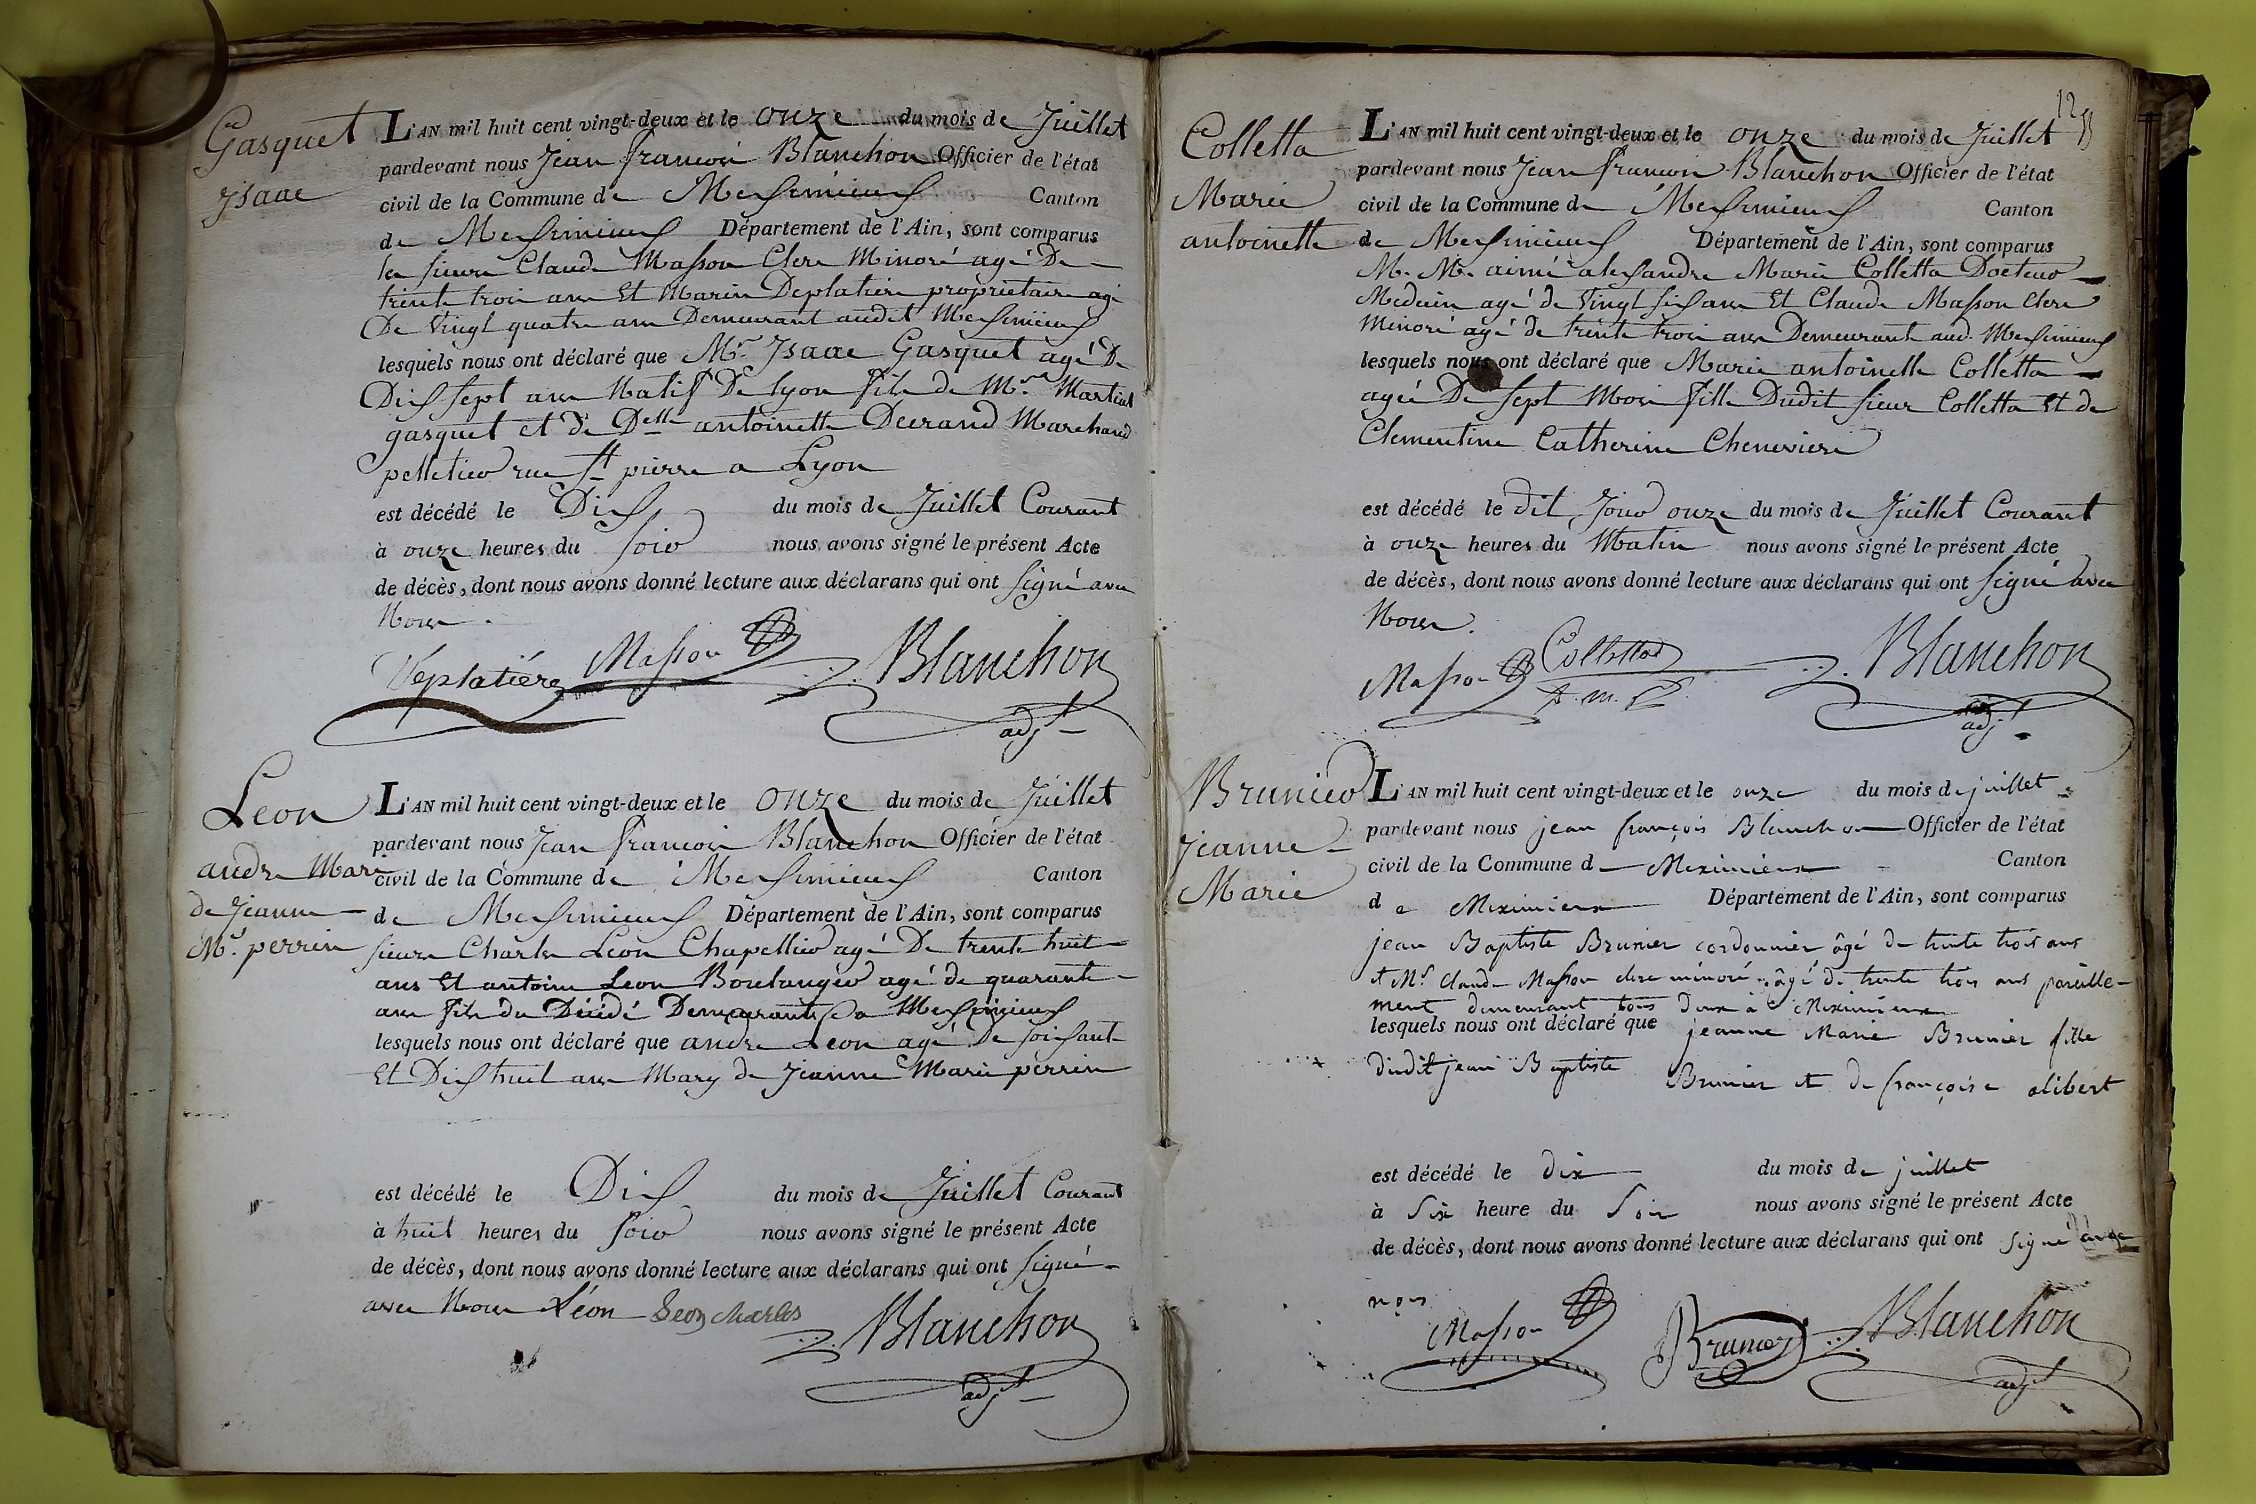 Gasquet
Isaac
L'AN mil huit cent vingt-deux et le onze du mois de Juillet
pardevant nous Jean françois Blanchon Officier de l'état
civil de la Commune de Meximieux Canton
de Meximieux Département de l'Ain, sont comparus
les sieurs Claude Masson Clerc Minoré agé De
trente trois ans Et Marin Deplatiere proprietaire agé
De Vingt quatre ans Demeurant audit Meximieux
lesquels nous ont déclaré que Mr. Isaac Gasquet agé De
Dix sept ans Natif De lyon fils de Mr. Martial
gasquet et de Delle antoinette Decrand Marchand
pelletier rue St pierre a Lyon
est décédé le Dix du mois de Juillet Courant
à onze heures du soir nous avons signé le présent Acte
de décès, dont nous avons donné lecture aux déclarans qui ont signé avec
Nous.
Deplatiére Masson Blanchon
adjt
Leon
andre Mari
de Jeanne
Me. perrin
L'AN mil huit cent vingt-deux et le onze du mois de Juillet
pardevant nous Jean françois Blanchon Officier de l'état
civil de la Commune de Meximieux Canton
de Meximieux Département de l'Ain, sont comparus
sieurs Charles Leon Chapellier agé De trente huit
ans Et antoine Leon Boulanger agé de quarante
ans fils du Décédé Demeurants a Meximieux
lesquels nous ont déclaré que andre Leon agé De soixante
Et Dix huit ans Mary de Jeanne Marie perrin
est décédé le Dix du mois de Juillet Courant
à huit heures du soir nous avons signé le présent Acte
de décès, dont nous avons donné lecture aux déclarans qui ont signé
avec Nous Léon Leon charles Blanchon
adjt
Colletta
Marie
antoinette
L'AN mil huit cent vingt-deux et le onze du mois de Juillet
pardevant nous Jean françois Blanchon Officier de l'état
civil de la Commune de Meximieux Canton
de Meximieux Département de l'Ain, sont comparus
M. M. aimé alexandre Marie Colletta Docteur
Medecin agé de Vingt six ans Et Claude Masson Clerc
Minoré agé de trente trois ans Demeurant aud. Meximieux
lesquels nous ont déclaré que Marie antoinette Colletta
agée De sept Mois fille Dudit sieur Colletta Et de
Clementine Catherine Cheneviere
est décédé le dit Jour onze du mois de Juillet Courant
à onze heures du Matin nous avons signé le présent Acte
de décès, dont nous avons donné lecture aux déclarans qui ont signé avec
Nous.
Masson Colletta Blanchon
adjt
Brunier
Jeanne
Marie
L'AN mil huit cent vingt-deux et le onze du mois de juillet
pardevant nous jean françois Blanchon Officier de l'état
civil de la Commune d Meximieux Canton
de Meximieux Département de l'Ain, sont comparus
jean Baptiste Brunier cordonnier âgé de trente trois ans
et Mr. Claude Masson clerc minoré âgé de trente trois ans pareille-
ment demeurant tous deux à Meximieux
lesquels nous ont déclaré que jeanne Marie Brunier fille
dudit jean Baptiste Brunier et de françoise alibert
est décédé le dix du mois de juillet
à Six heure du Soir nous avons signé le présent Acte
de décès, dont nous avons donné lecture aux déclarans qui ont signé avec
nous
Masson Brunier Blanchon
adjt